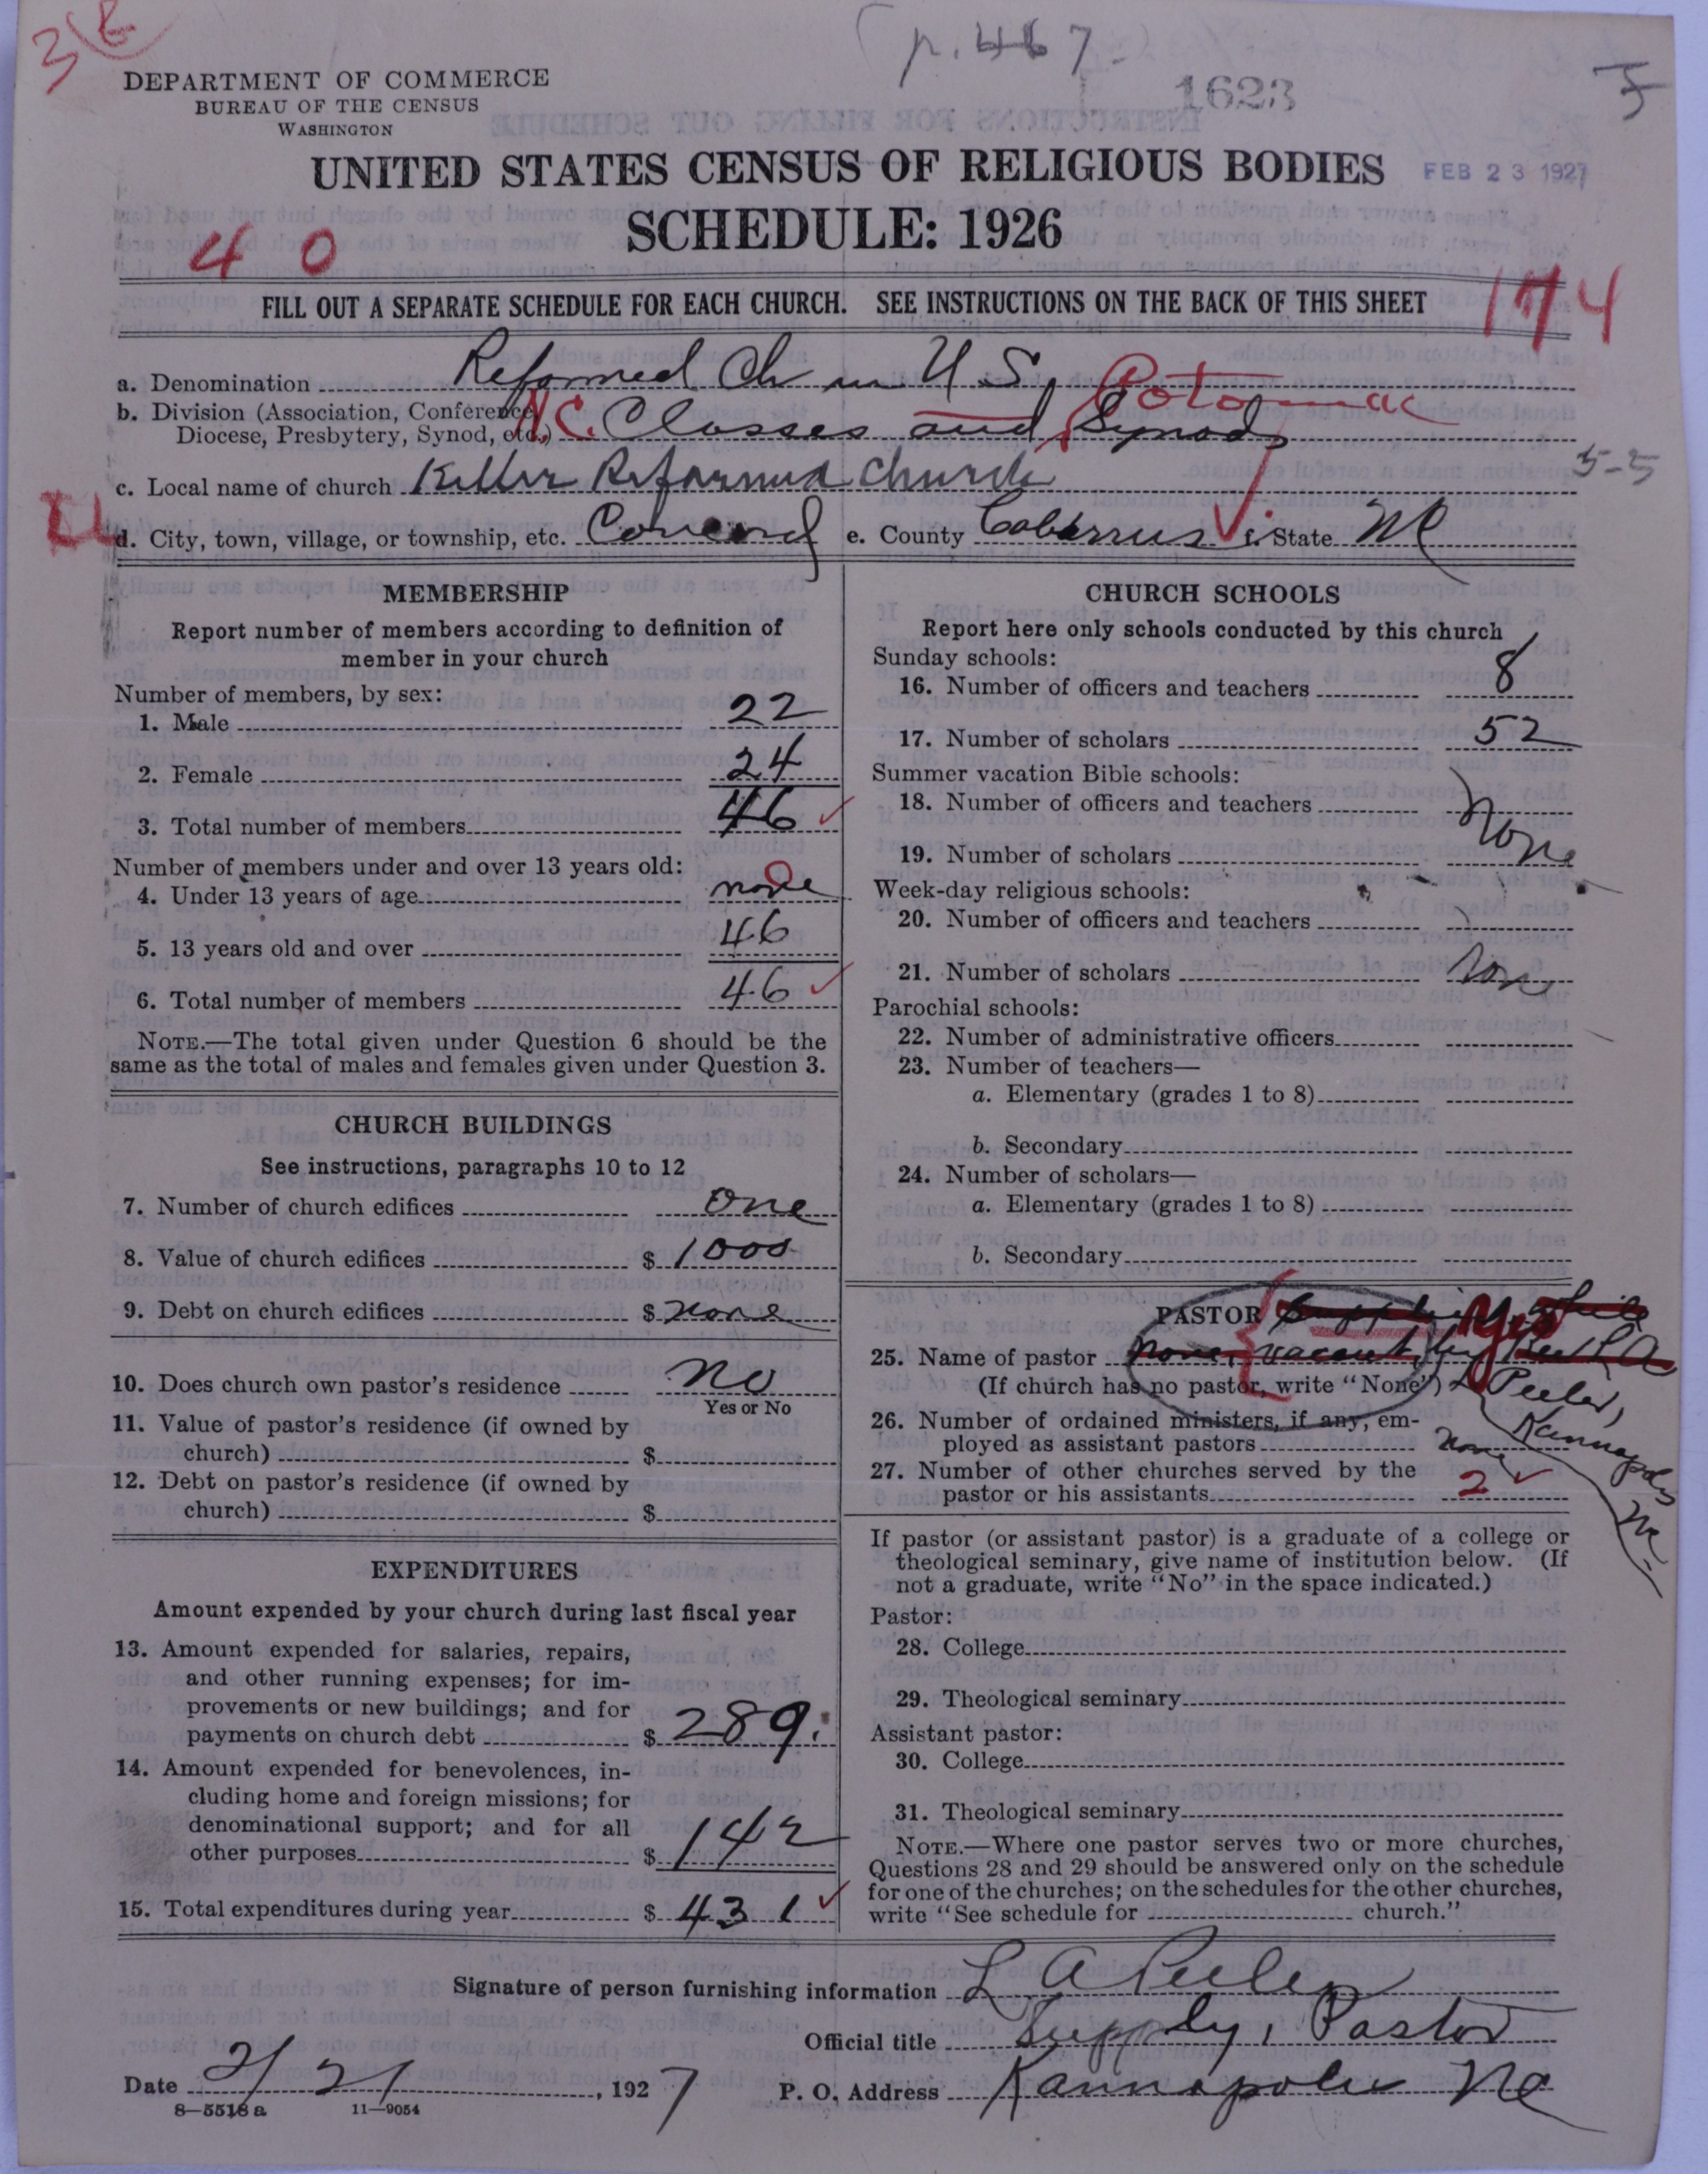 3 6
p. 467
1623
DEPARTMENT OF COMMERCE
BUREAU OF THE CENSUS
WASHINGTON
UNITED STATES CENSUS OF RELIGIOUS BODIES
FEB 23 1927
SCHEDULE: 1926
4 0
174
FILL OUT A SEPARATE SCHEDULE FOR EACH CHURCH. SEE INSTRUCTIONS ON THE BACK OF THIS SHEET
a. Denomination Reformed Ch in U S,
b. Division (Association, Conference, Diocese, Presbytery, Synod, etc.) N.C. Classes and Potomac Synod
c. Local name of church Keller Reformed Church
5-5
d. City, town, village, or township, etc. Concord e. County Cabarrus f. State NC
MEMBERSHIP
Report number of members according to definition of
member in your church
Number of members, by sex:
1. Male 22
2. Female 24
3. Total number of members 46
Number of members under and over 13 years old:
4. Under 13 years of age none 0
5. 13 years old and over 46
6. Total number of members 46
NOTE.—The total given under Question 6 should be the
same as the total of males and females given under Question 3.
CHURCH BUILDINGS
See instructions, paragraphs 10 to 12
7. Number of church edifices one
8. Value of church edifices $ 1000
9. Debt on church edifices $ none
10. Does church own pastor's residence no
Yes or No
11. Value of pastor's residence (if owned by
church) $
12. Debt on pastor's residence (if owned by
church) $
EXPENDITURES
Amount expended by your church during last fiscal year
13. Amount expended for salaries, repairs,
and other running expenses; for im-
provements or new buildings; and for
payments on church debt $ 289.
14. Amount expended for benevolences, in-
cluding home and foreign missions; for
denominational support; and for all
other purposes $ 142
15. Total expenditures during year $ 431
CHURCH SCHOOLS
Report here only schools conducted by this church
Sunday schools:
16. Number of officers and teachers 8
17. Number of scholars 52
Summer vacation Bible schools:
18. Number of officers and teachers
19. Number of scholars None
Week-day religious schools:
20. Number of officers and teachers
21. Number of scholars Non
Parochial schools:
22. Number of administrative officers
23. Number of teachers—
a. Elementary (grades 1 to 8)
b. Secondary
24. Number of scholars—
a. Elementary (grades 1 to 8)
b. Secondary
PASTOR Yes
25. Name of pastor none, vacant, by Rev L A
(If church has no pastor, write "None") Peeler,
Kannapolis
NC
26. Number of ordained ministers, if any, em-
ployed as assistant pastors none
27. Number of other churches served by the
pastor or his assistants 2
If pastor (or assistant pastor) is a graduate of a college or
theological seminary, give name of institution below. (If
not a graduate, write "No" in the space indicated.)
Pastor:
28. College
29. Theological seminary
Assistant pastor:
30. College
31. Theological seminary
NOTE.—Where one pastor serves two or more churches,
Questions 28 and 29 should be answered only on the schedule
for one of the churches; on the schedules for the other churches,
write "See schedule for church."
Signature of person furnishing information L A Peeler
Official title Supply, Pastor
Date 2/21, 1927 P. O. Address Kannapolis NC
8—5518 a 11—9054